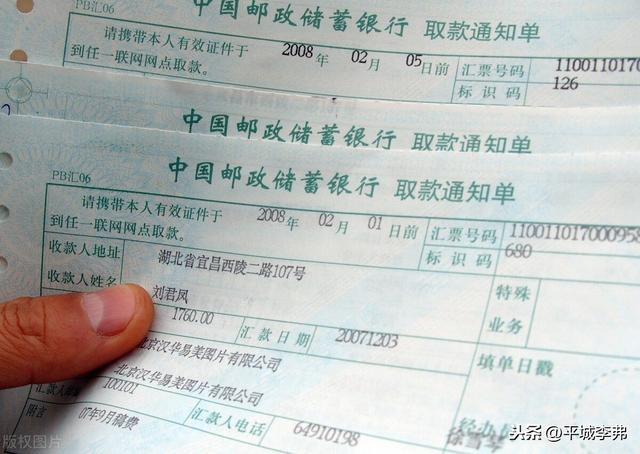 中国邮政储蓄银行 取款通知单
PB汇06
请携带本人有效证件于 2008年 02月 05日前
到任一联网网点取款。
汇票号码 1100110170
标识码 126
中国邮政储蓄银行 取款通知单
中国邮政储蓄银行 取款通知单
PB汇06
请携带本人有效证件于 2008年 02月 01日前
到任一联网网点取款。
汇票号码 1100110170009958
标识码 680
收款人地址 湖北省宜昌西陵二路107号
收款人姓名 刘君凤
特殊
业务
1760.00 汇款日期 20071203
北京汉华易美图片有限公司
填单日戳
北京汉华易美图片有限公司
汇款人邮编 100101
附言 07年9月稿费 汇款人电话 64910198
经办
徐雪琴
版权图片
头条 @平城李弗